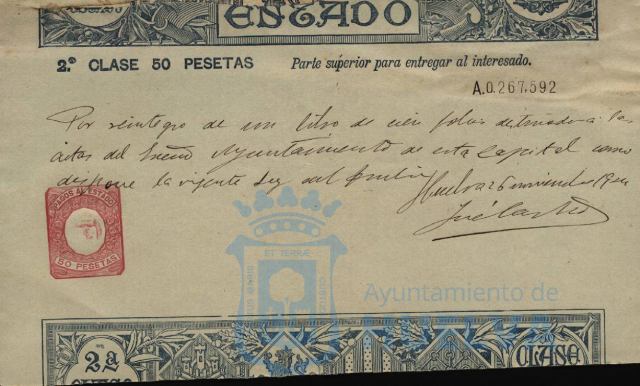 ESTADO
2.ª CLASE 50 PESETAS Parte superior para entregar al interesado.
A.0.267,592
Por reintegro de un libro de cien folios destinado a las
actas del Excmo Ayuntamiento de esta Capital como
dispone la vigente Ley del
Huelva 26
PAGOS AL ESTADO
50 PESETAS
ET TERRÆ
Ayuntamiento de
2.ª CLASE